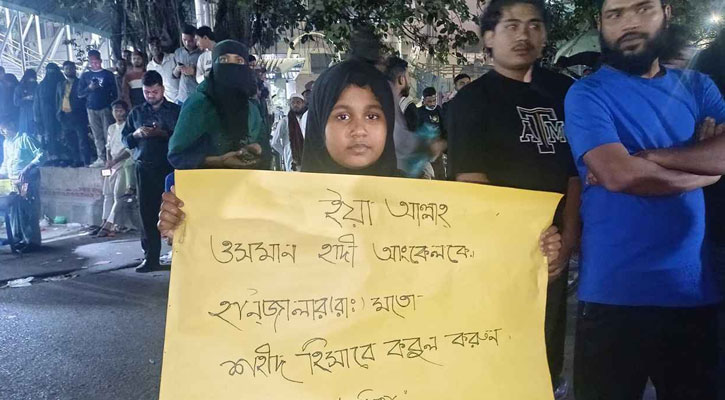 ইয়া আল্লাহ্
ওসমান হাদী আংকেলকে
হানজালার(রাঃ) মতো
শহীদ হিসাবে কবুল করুন.
ATM